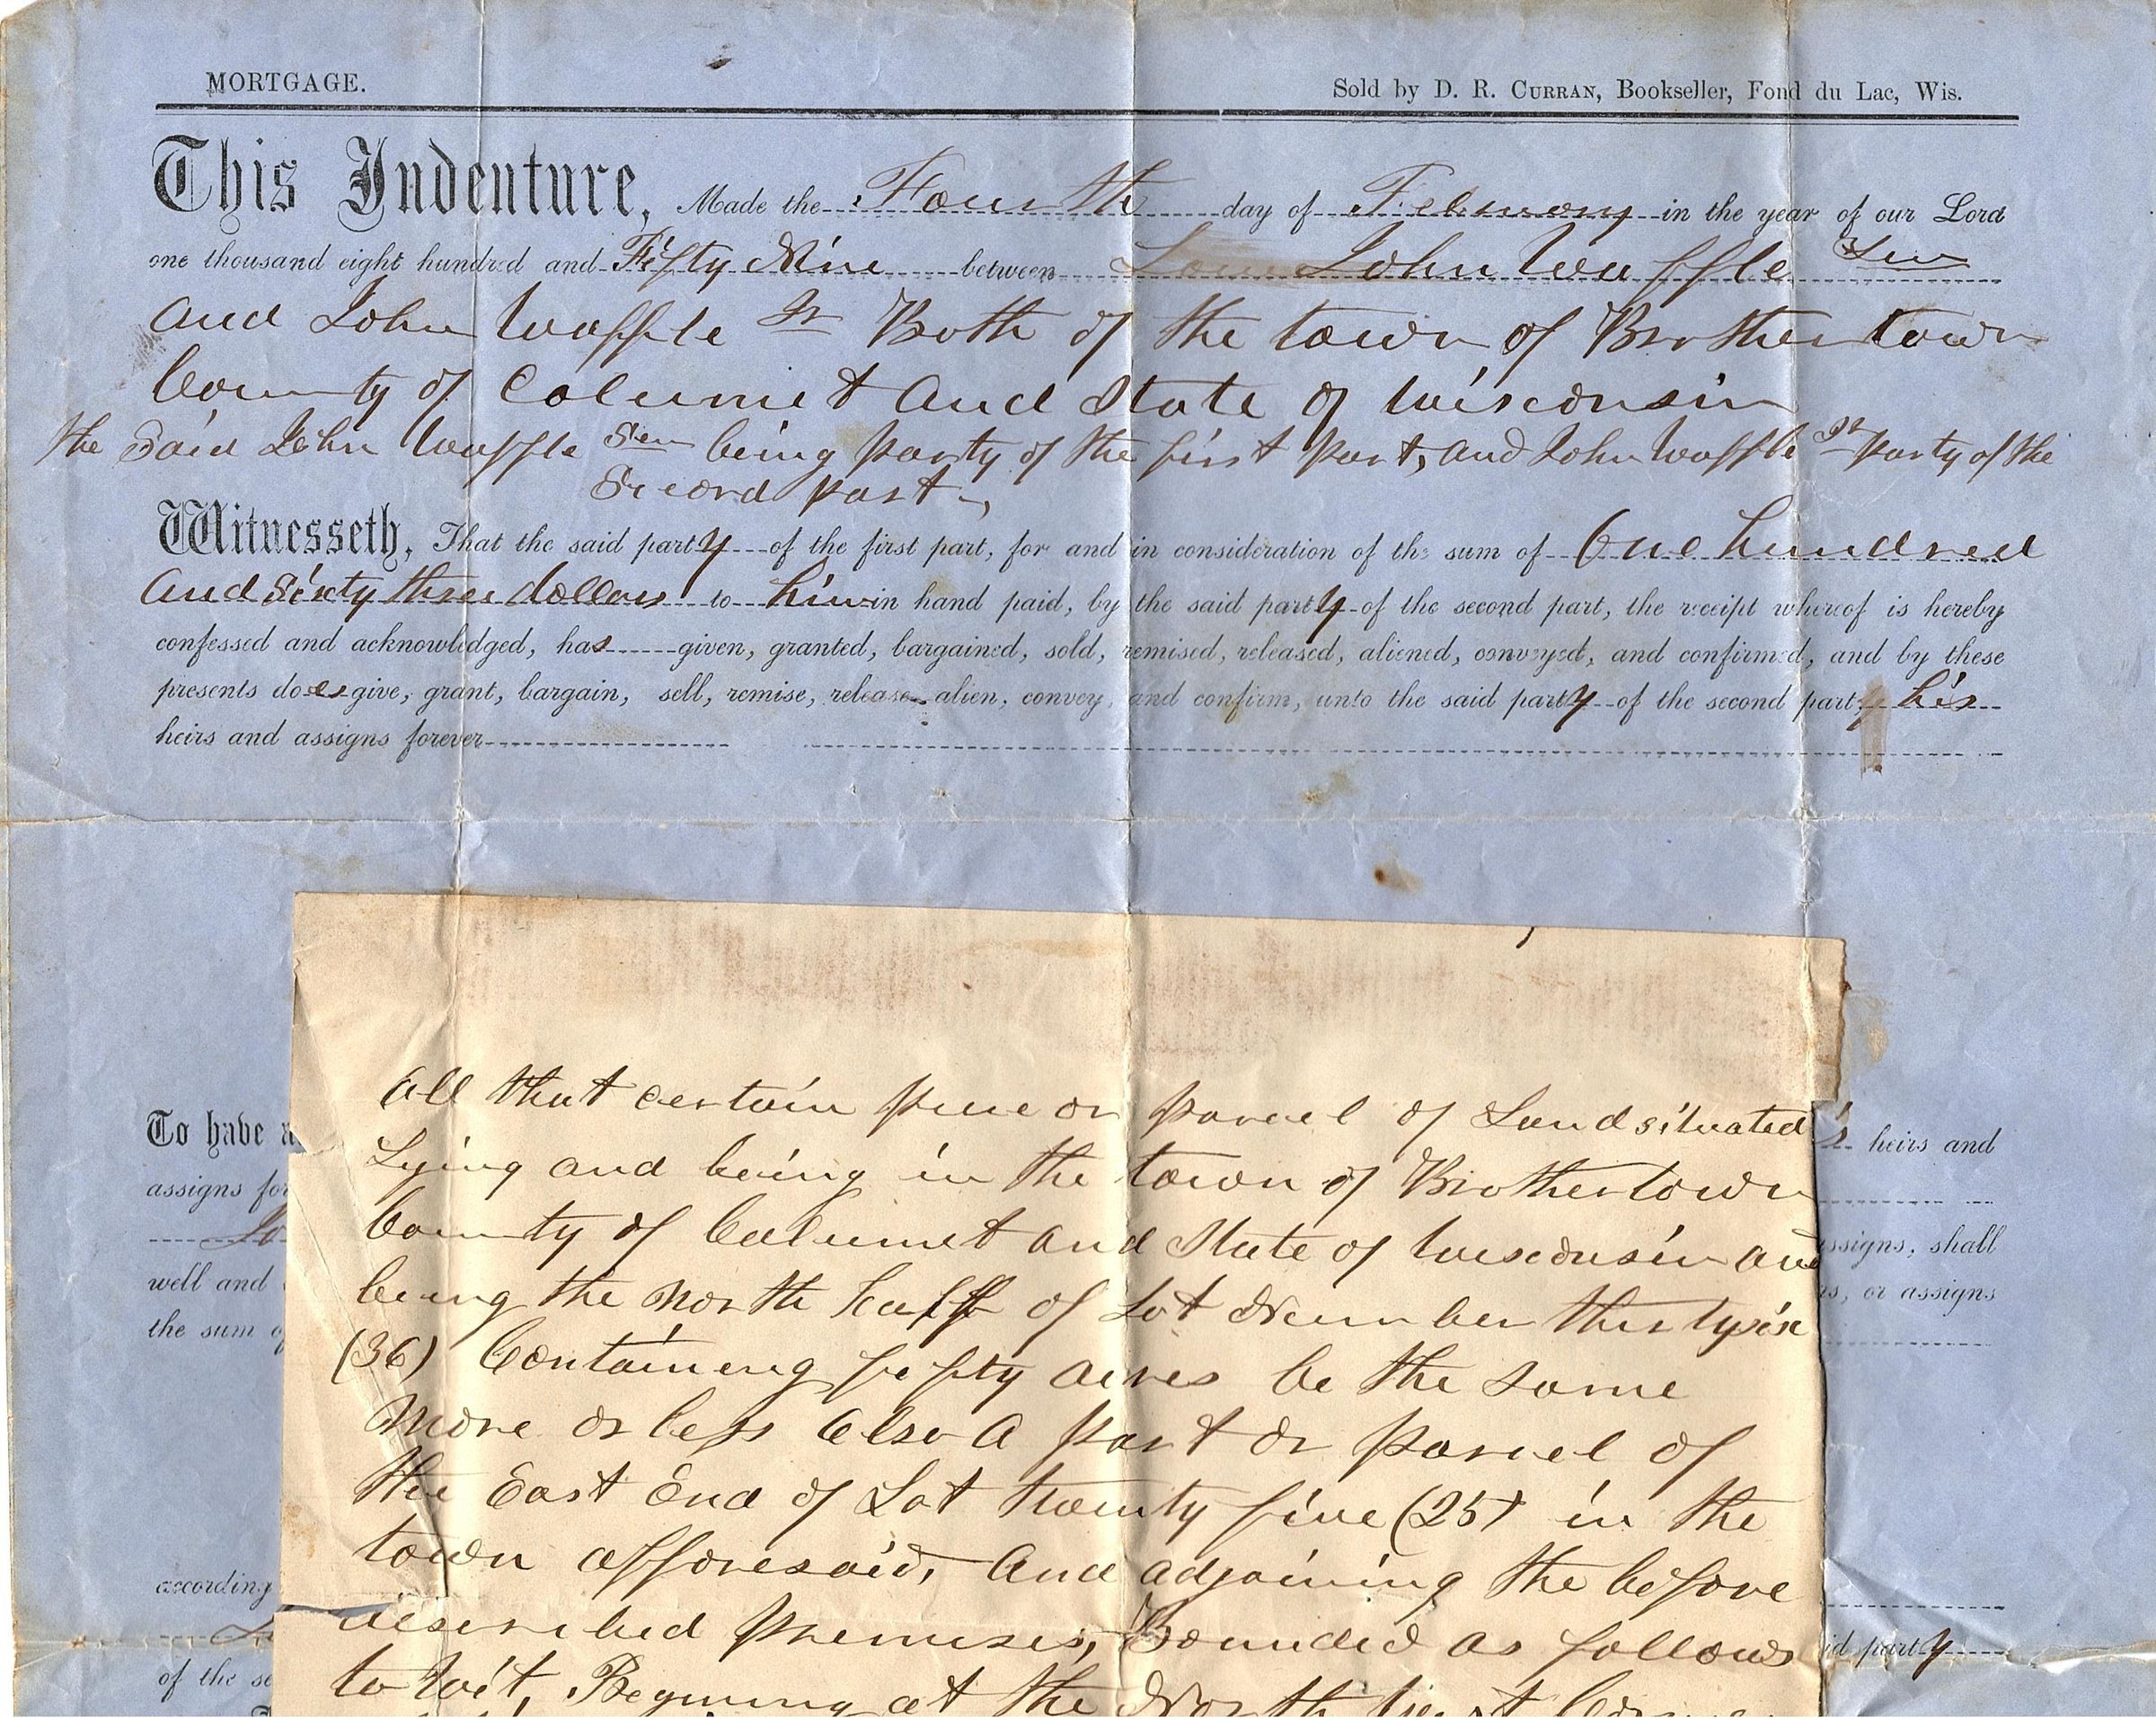 MORTGAGE.
Sold by D. R. CURRAN, Bookseller, Fond du Lac, Wis.
This Indenture, Made the Fourth day of February in the year of our Lord
one thousand eight hundred and Fifty Nine between John Waffle Sen
and John Waffle Jr Both of the town of Brothertown
County of Calumet and State of Wisconsin
the Said John Waffle Sen being party of the first part, and John Waffle Jr party of the
Second part,
Witnesseth, That the said party of the first part, for and in consideration of the sum of One hundred
and Sixty three dollars to him in hand paid, by the said party of the second part, the receipt whereof is hereby
confessed and acknowledged, has given, granted, bargained, sold, remised, released, aliened, conveyed, and confirmed, and by these
presents does give, grant, bargain, sell, remise, release alien, convey, and confirm, unto the said party of the second party his
heirs and assigns forever
All that certain piece or parcel of Land situated
Lying and being in the town of Brothertown
County of Calumet and State of Wisconsin and
being the North half of Lot Number thirty six
(36) Containing fifty acres be the same
More or less Also a part or parcel of
the East End of Lot twenty five (25) in the
town afforesaid, and adjoining the before
described premises, Bounded as follows
to wit, Begining at the North West Corner
To have a
heirs and
assigns for
assigns, shall
well and
or assigns
the sum of
according
party
of the se